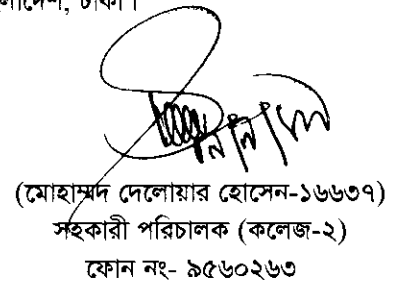 বাংলাদেশ, ঢাকা।
(মোহাম্মদ দেলোয়ার হোসেন-১৬৬৩৭)
সহকারী পরিচালক (কলেজ-২)
ফোন নং- ৯৫৬০২৬৩